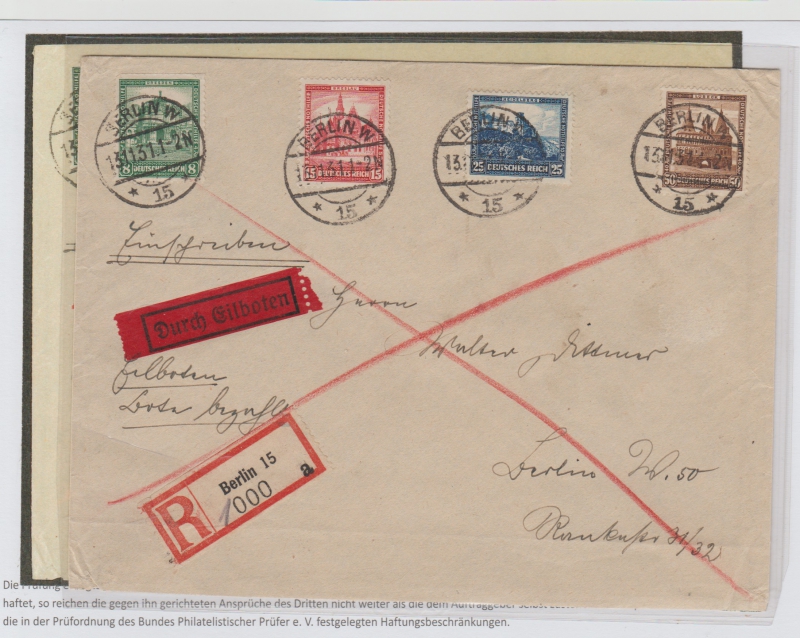 DRESDEN
8 DEUTSCHES REICH 8
BRESLAU
15 DEUTSCHES REICH 15
HEIDELBERG
25 DEUTSCHES REICH 25
50 DEUTSCHES REICH 50
BERLIN W
13.11.31.1-2N
* 15 *
BERLIN W
* 15 *
BERLIN W
* 15 *
BERLIN W
* 15 *
Einschreiben
Durch Eilboten
Herrn
Walter Dittmer
Eilboten
Bote bezahlt
R
Berlin 15
a
1000
Berlin W. 50
Rankestr 31/32
Die Prüfung
haftet, so reichen die gegen ihn gerichteten Ansprüche des Dritten nicht weiter als die dem Auftraggeber selbst
die in der Prüfordnung des Bundes Philatelistischer Prüfer e. V. festgelegten Haftungsbeschränkungen.